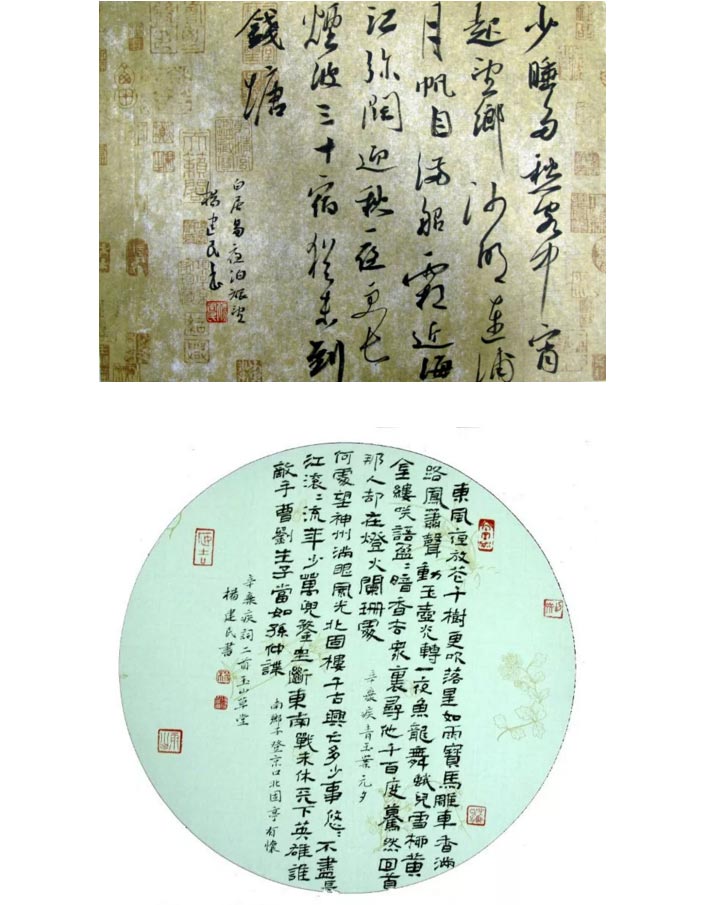 少睡多愁客中宵
起望鄉沙明連浦
月帆白滿船霜近海
江弥闊迎秋夜更長
煙波三十宿猶未到
錢塘
白居易夜泊旅望
楊建民書
東風夜放花千樹更吹落星如雨寶馬雕車香滿
路鳳簫聲動玉壺光轉一夜魚龍舞蛾兒雪柳黃
金縷笑語盈〻暗香去衆裏尋他千百度驀然回首
那人却在燈火闌珊處 辛棄疾青玉案元夕
何處望神州滿眼風光北固樓千古興亡多少事悠〻不盡長
江滾〻流年少萬兜鍪坐斷東南戰未休天下英雄誰
敵手曹劉生子當如孫仲謀 南鄉子登京口北固亭有懷
辛棄疾詞二首玉山草堂
楊建民書